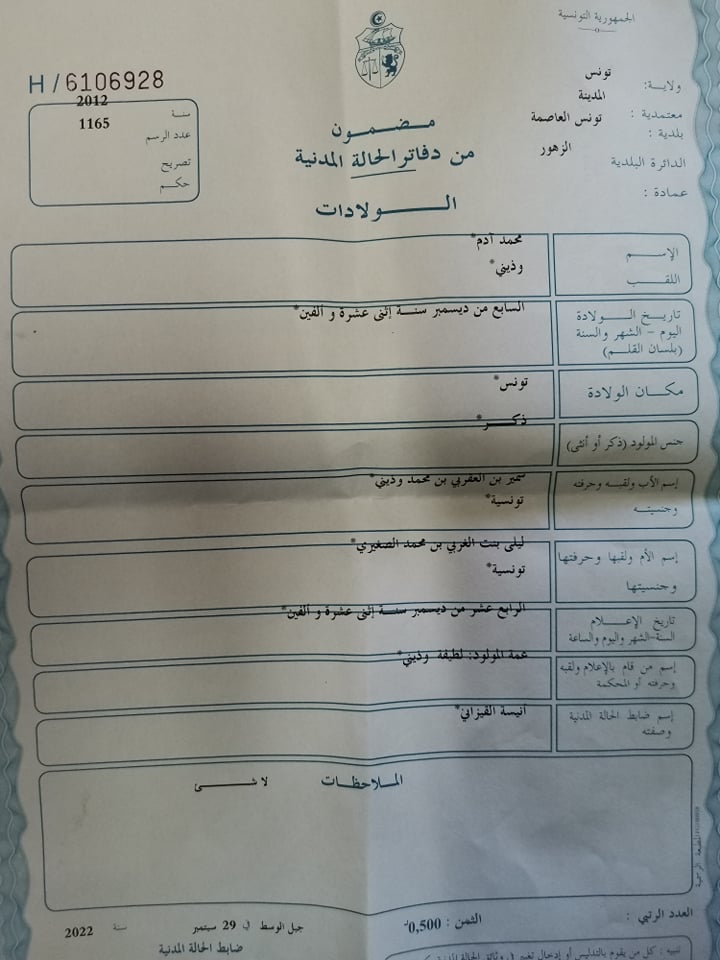 الجمهورية التونسية
H / 6106928
ولاية: تونس
معتمدية : المدينة
بلدية : تونس العاصمة
الدائرة البلدية الزهور
عمادة :
سنة 2012
عدد الرسم 1165
تصريح
حكم
مضمون
من دفاتر الحالة المدنية
الولادات
الإسم محمد آدم*
اللقب وذيني*
تاريخ الولادة السابع من ديسمبر سنة إثنى عشرة و ألفين*
اليوم - الشهر والسنة
(بلسان القلم)
مكان الولادة تونس*
جنس المولود (ذكر أو أنثى) ذكر*
إسم الأب ولقبه وحرفته سمير بن العقربي بن محمد وذيني*
وجنسيته تونسية*
إسم الأم ولقبها وحرفتها ليلى بنت الغربي بن محمد الصغيري*
وجنسيتها تونسية*
تاريخ الإعلام الرابع عشر من ديسمبر سنة إثنى عشرة و ألفين*
السنة-الشهر واليوم والساعة
إسم من قام بالإعلام ولقبه عمة المولود: لطيفة وذيني*
وحرفته أو المحكمة
إسم ضابط الحالة المدنية أنيسة القيزاني*
وصفته
الملاحظات لا شئ
المطبعة الرسمية
العدد الرتبي : الثمن : 0,500د
جبل الوسط في 29 سبتمبر سنة 2022
ضابط الحالة المدنية
تنبيه : كل من يقوم بالتدليس أو إدخال تغيير في وثائق الحالة المدنية